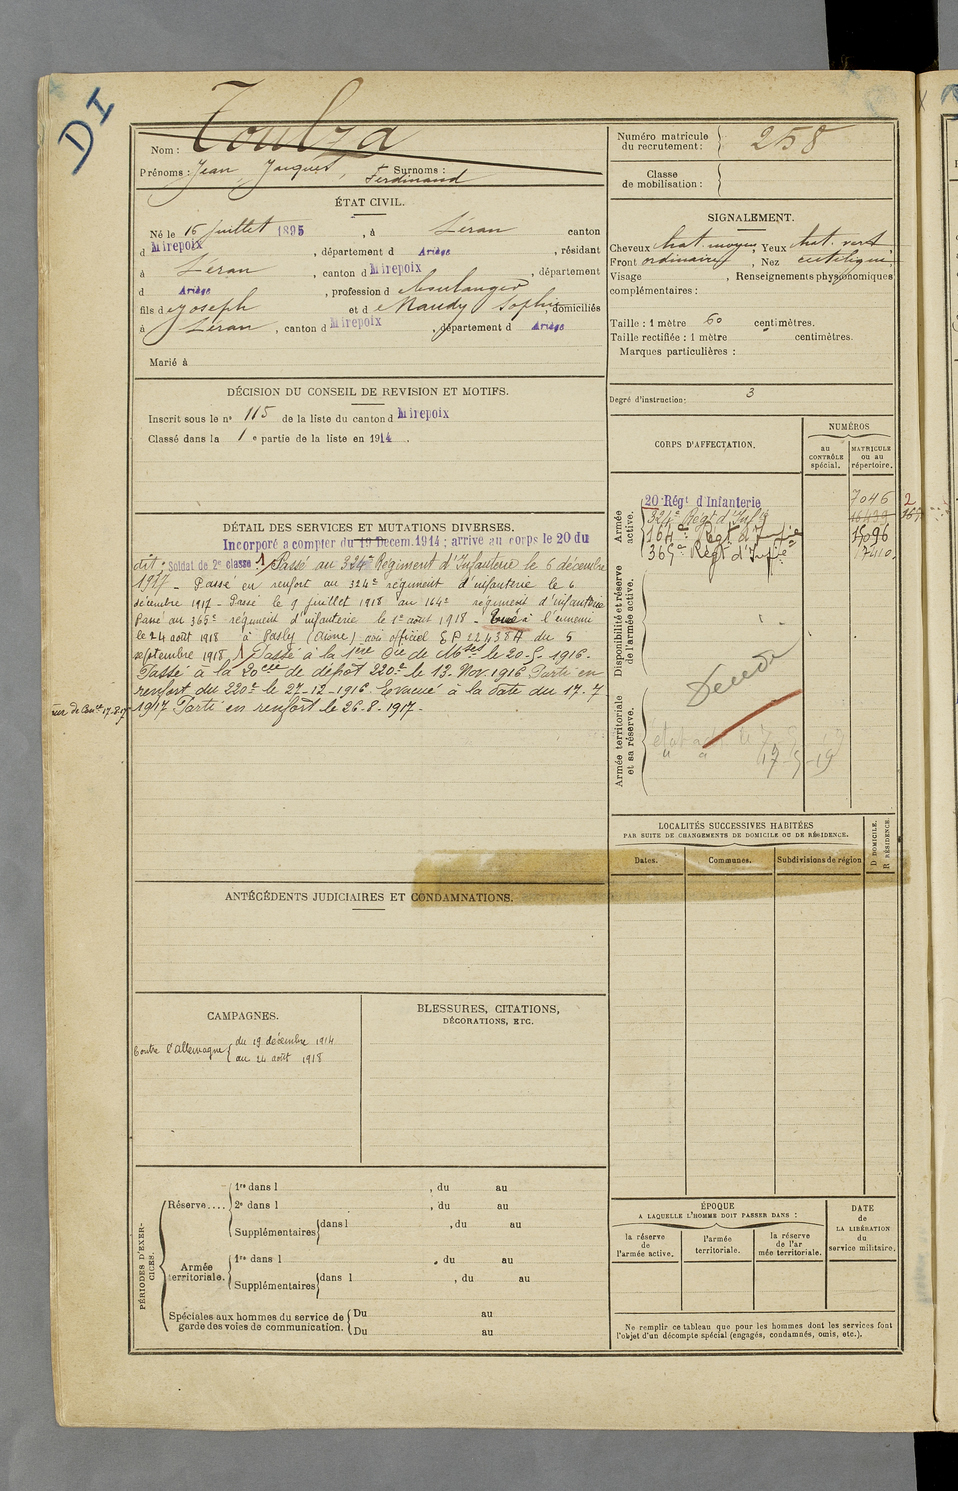 DI
Nom : Toulza
Prénoms : Jean, Jacques, Surnoms :
Ferdinand
ÉTAT CIVIL.
Né le 16 juillet 1895, à Léran canton
d Mirepoix, département d Ariège, résidant
à Léran, canton d Mirepoix, département
d Ariège, profession d boulanger
fils d e Joseph et d e Naudy Sophie, domiciliés
à Léran, canton d Mirepoix, département d Ariège
Marié à
DÉCISION DU CONSEIL DE REVISION ET MOTIFS.
Inscrit sous le nº 115 de la liste du canton d Mirepoix
Classé dans la 1 e partie de la liste en 1914.
DÉTAIL DES SERVICES ET MUTATIONS DIVERSES.
Incorporé a compter du 19 Decem. 1914 ; arrive au corps le 20 du
dit ; Soldat de 2e classe. Passé au 324e Régiment d'Infanterie le 6 décembre
1917 - Passé en renfort au 324e régiment d'infanterie le 6
décembre 1917 - Passé le 9 juillet 1918 au 164e régiment d'infanterie
Passé au 365e régiment d'infanterie le 1er août 1918 - Tué à l'ennemi
le 24 août 1918 à Pasly (Aisne) avis officiel EP 22438A du 5
septembre 1918. Passé à la 1ère Cie de Mses le 20-5-1916.
Passé à la 20 cie de dépôt 220e le 13. Nov. 1916 Parti en
renfort du 220e le 27-12-1916. Evacué à la date du 17-7
1917 Parti en renfort le 26.8.1917.
17.8.17
ANTÉCÉDENTS JUDICIAIRES ET CONDAMNATIONS.
CAMPAGNES.
Contre l'Allemagne { du 19 décembre 1914
au 24 août 1918
BLESSURES, CITATIONS,
DÉCORATIONS, ETC.
PÉRIODES D'EXERCICES.
Réserve.... 1re dans l , du au
2e dans l , du au
Supplémentaires dans l , du au
Armée
territoriale. 1re dans l , du au
Supplémentaires dans l , du au
Spéciales aux hommes du service de
garde des voies de communication. Du au
Du au
Numéro matricule
du recrutement : 258
Classe
de mobilisation :
SIGNALEMENT.
Cheveux chat. moyen, Yeux chat. vert,
Front ordinaire, Nez rectiligne,
Visage , Renseignements physionomiques
complémentaires :
Taille : 1 mètre 60 centimètres.
Taille rectifiée : 1 mètre centimètres.
Marques particulières :
Degré d'instruction : 3
CORPS D'AFFECTATION.
NUMÉROS
au
CONTRÔLE
spécial.
MATRICULE
ou au
répertoire.
Armée
active.
20 Régt d'Infanterie 7046
324e Régt d'Inf 16439
164e Régt d'Infrie 15096
365e Régt d'Infie 17410
2
167
Disponibilité et réserve
de l'armée active.
Décédé
Armée territoriale
et sa réserve.
LOCALITÉS SUCCESSIVES HABITÉES
PAR SUITE DE CHANGEMENTS DE DOMICILE OU DE RÉSIDENCE.
Dates.
Communes.
Subdivisions de région
D DOMICILE.
R RÉSIDENCE.
ÉPOQUE
A LAQUELLE L'HOMME DOIT PASSER DANS :
la réserve
de
l'armée active.
l'armée
territoriale.
la réserve
de l'ar
mée territoriale.
DATE
de
LA LIBÉRATION
du
service militaire.
Ne remplir ce tableau que pour les hommes dont les services font
l'objet d'un décompte spécial (engagés, condamnés, omis, etc.).